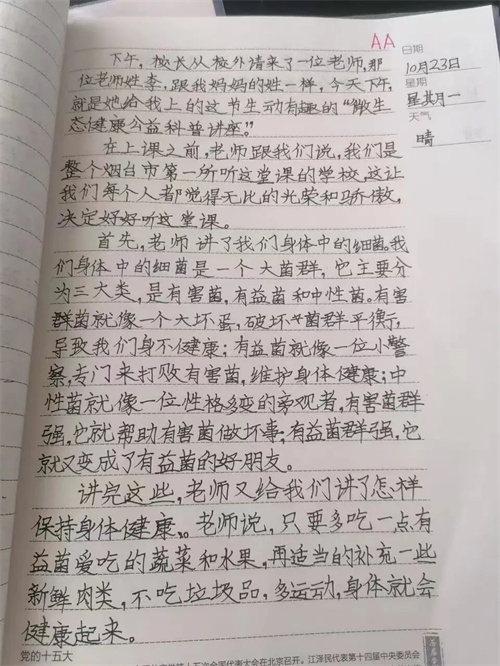 AA
日期
10月23日
星期
星期一
天气
晴
下午，校长从校外请来了一位老师，那
位老师姓李，跟我妈妈的姓一样，今天下午，
就是她给我上的这节生动有趣的“微生
态健康公益科普讲座。”
在上课之前，老师跟我们说，我们是
整个烟台市第一所听这堂课的学校，这让
我们每个人都觉得无比的光荣和骄傲，
决定好好听这堂课。
首先，老师讲了我们身体中的细菌。我
们身体中的细菌是一个大菌群，它主要分
为三大类，是有害菌，有益菌和中性菌。有害
群菌就像一个大坏蛋，破坏菌群平衡，
导致我们身不健康；有益菌就像一位小警
察，专门来打败有害菌，维护身体健康；中
性菌就像一位性格多变的旁观者，有害菌群
强，它就帮助有害菌做坏事；有益菌群强，它
就又变成了有益菌的好朋友。
讲完这些，老师又给我们讲了怎样
保持身体健康。老师说，只要多吃一点有
益菌爱吃的蔬菜和水果，再适当的补充一些
新鲜肉类，不吃垃圾品，多运动，身体就会
健康起来。
党的十五大
次全国代表大会在北京召开。江泽民代表第十四届中央委员会